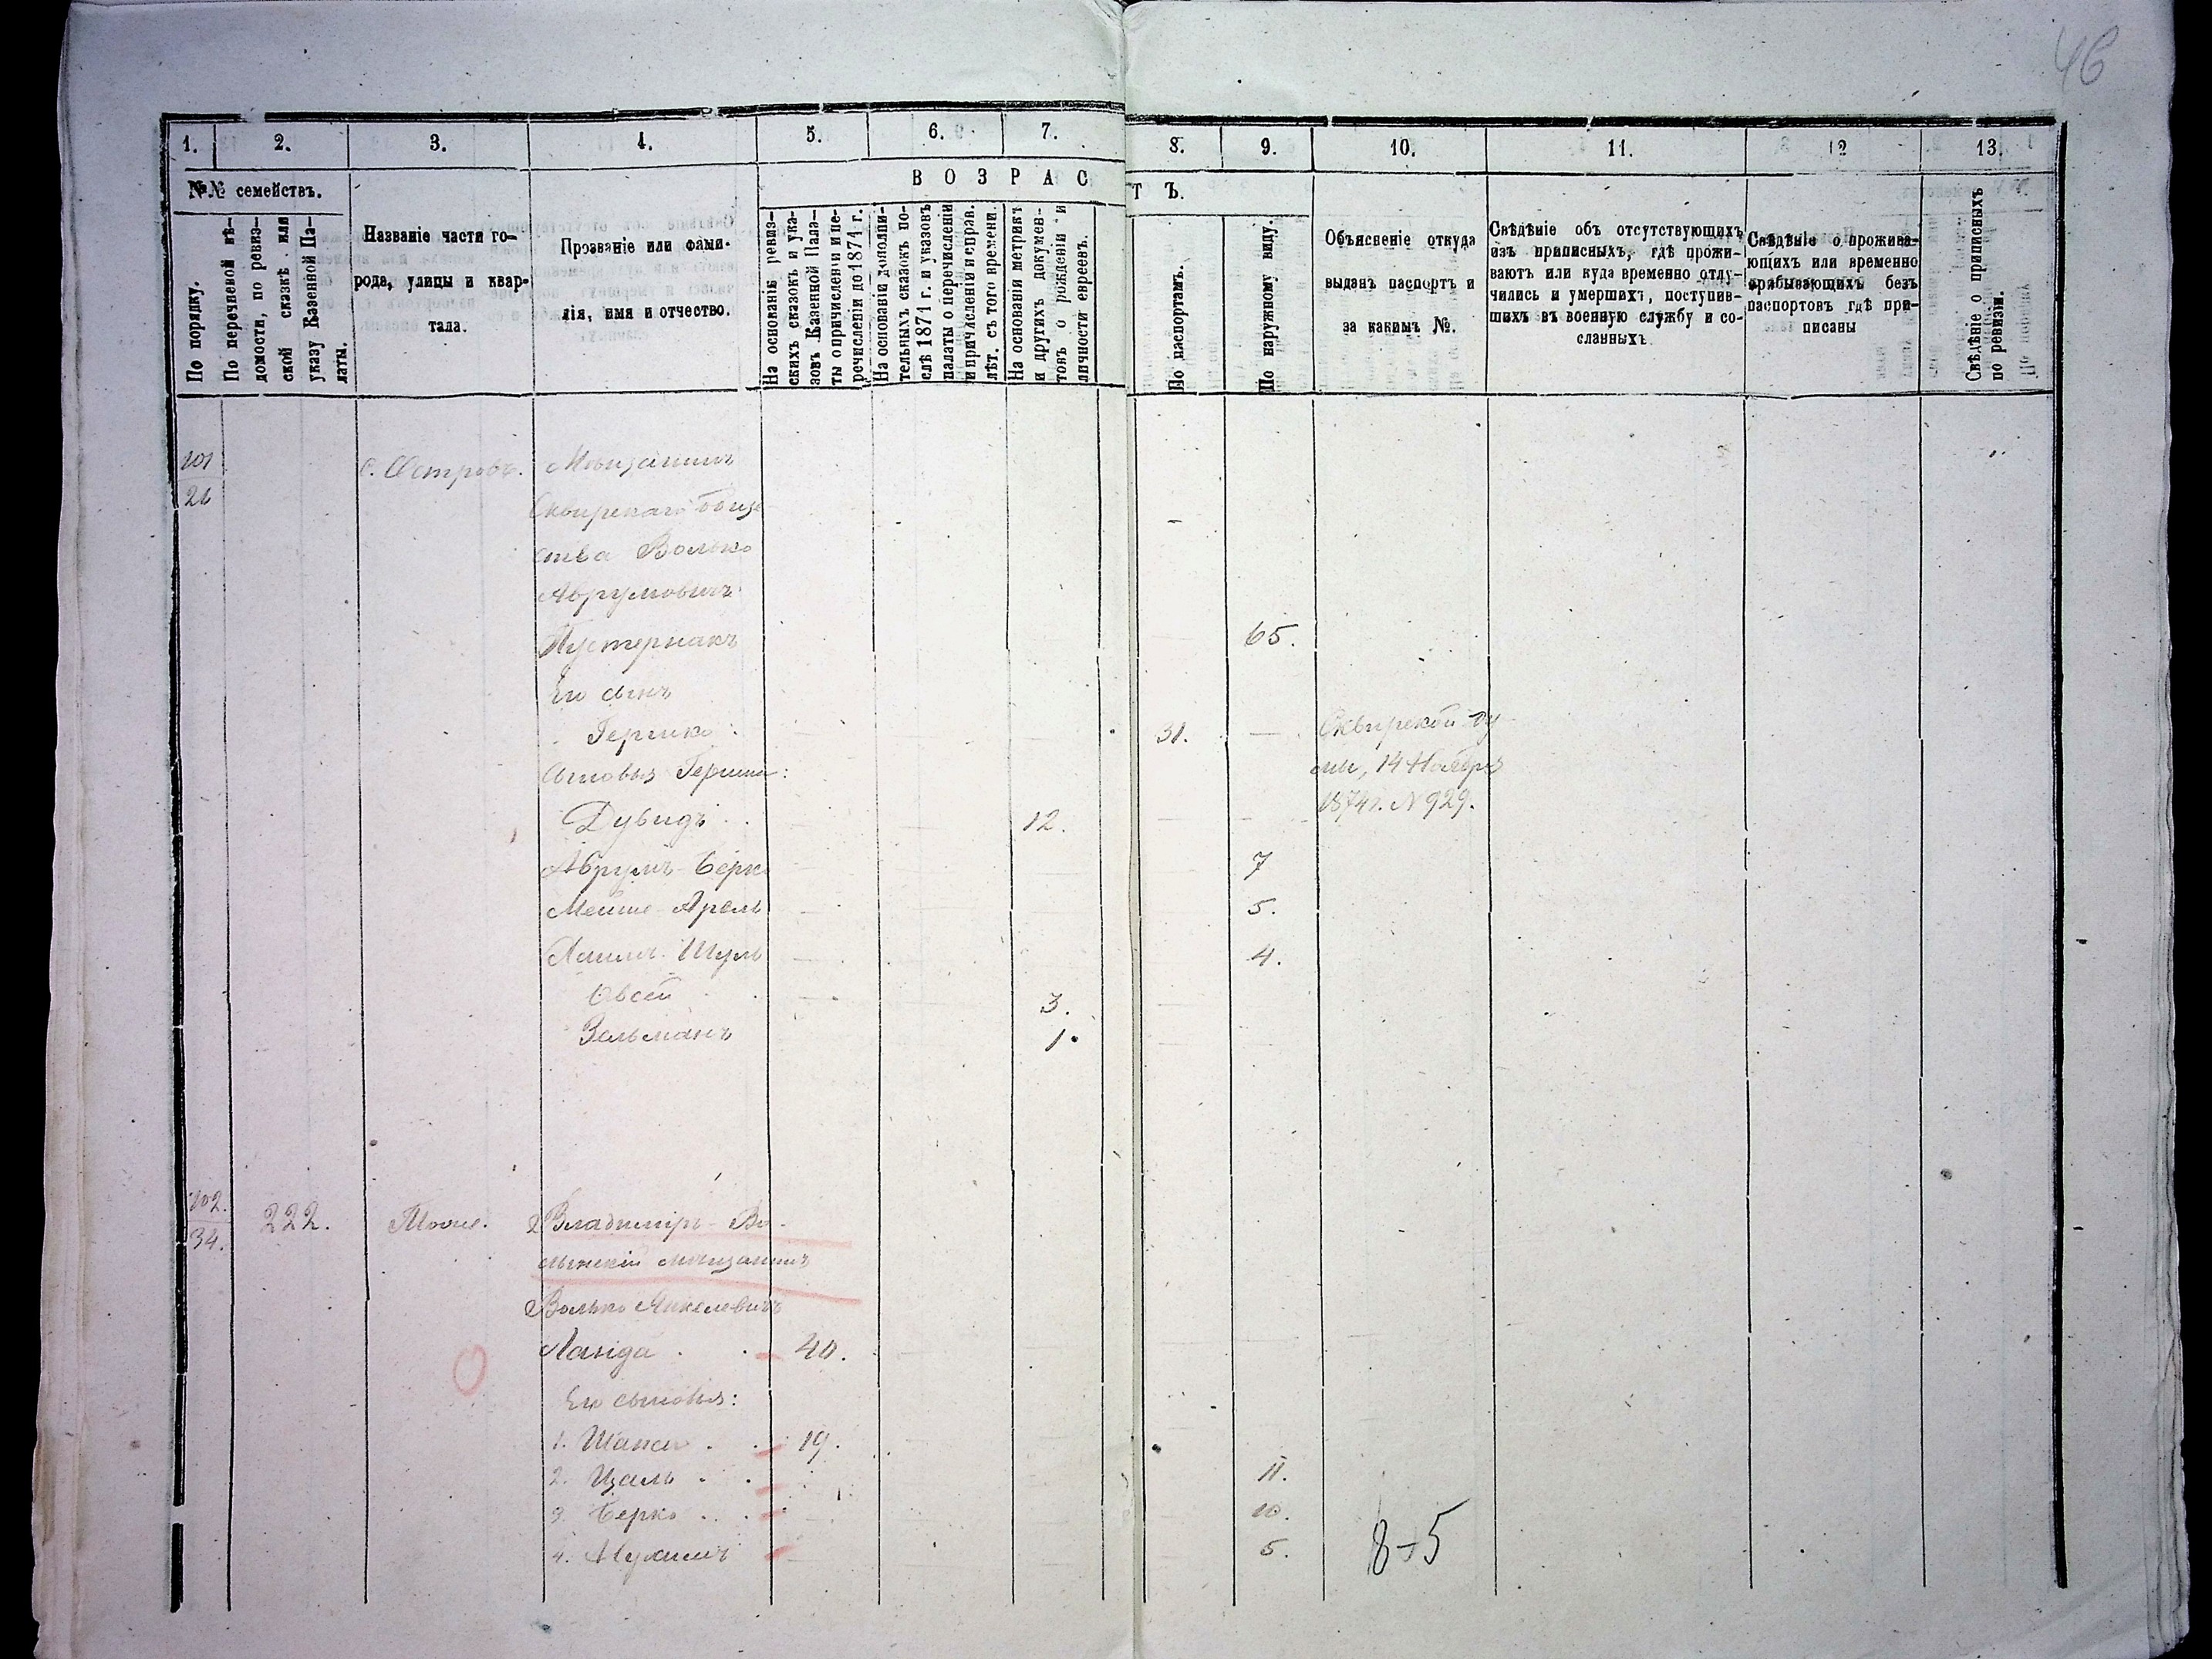 46
1. 2. 3. 4. 5. 6. 7. 8. 9. 10. 11. 12 13.
№№ семействъ.
По порядку.
По перечневой вѣ-
домости, по ревиз-
ской сказкѣ или
указу Казенной Па-
латы.
Названіе части го-
рода, улицы и квар-
тала.
Прозваніе или фами-
лія, имя и отчество.
ВОЗРАСТЪ.
На основаніи ревиз-
скихъ сказокъ и ука-
зовъ Казенной Пала-
ты о причисленіи и пе-
речисленіи до 1874 г.
На основаніи дополни-
тельныхъ сказокъ по-
слѣ 1874 г. и указовъ
палаты о перечисленіи
и причисленіи и справ.
лѣт. съ того времени.
На основаніи метрикъ
и другихъ докумен-
товъ о рожденіи и
личности евреевъ.
По паспортамъ.
По наружному виду.
Объясненіе откуда
выданъ паспортъ и
за какимъ №.
Свѣдѣніе объ отсутствующихъ
изъ приписныхъ, гдѣ прожи-
ваютъ или куда временно отлу-
чились и умершихъ, поступив-
шихъ въ военную службу и со-
сланныхъ
Свѣдѣніе о прожива-
ющихъ или временно
прибывающихъ безъ
паспортовъ гдѣ при-
писаны
Свѣдѣніе о приписныхъ
по ревизіи.
101
26
с. Островъ. Мѣщанинъ
Сквирскаго обще
ства Волько
Аврумовичъ
Пустернакъ 65.
Его сынъ
Гершко 31. — Сквирской ду
Сыновья Гершка: мы, 14 Ноября
1874г. N 929.
Дувидъ 12.
Аврумъ-Берко 7
Мейше-Арель 5.
Шуль 4.
Овсей 3.
Зельманъ 1.
102.
34.
222. Тоже. Владиміръ-Во-
лынскій мѣщанинъ
Волько Янкелевичъ
Ланда 40.
Его сыновья:
1. 19.
2. Цаль 11.
3. Берко 10.
4. Нухимъ 5.
8-5